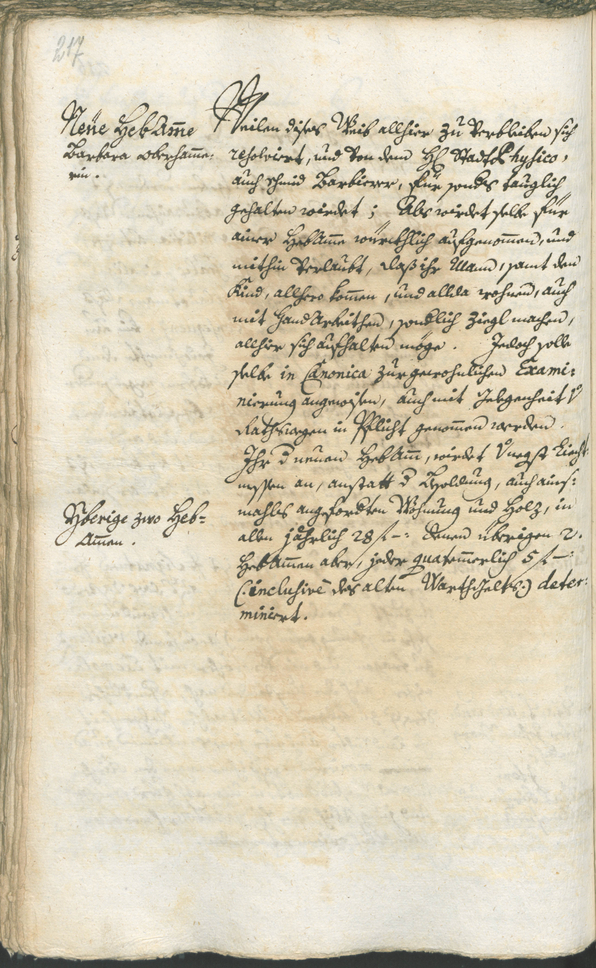 217
Neüe HebAm̄e
Barbara Oberham̄e:
rin.
Weilen dises Weib allhier zu verbleiben sich
resolviert, und von dem H. StadtPhysico,
auch Barbierer, für tauglich
gehalten wirdet; Als wirdet selbe für
ainer HebAm̄e würkhlich aufgenommen, und
mithin verlaubt, daß ihr Mann, samt dem
Kind, allhero kommen, und allda wohnen, auch
mit HandArbeithen, Ziegl machen,
allhier sich aufhalten möge. Jedoch solle
selbe in Canonica zur gewohnlichen Exami-
nierung angewisen, auch mit
Rathswegen in Pflicht genommen werden.
Ihr d neuen HebAm̄, wirdet Liecht
messen an, anstatt d Besoldung, auch
mahls angeforderten Wohnung und Holz, in
allen jährlich 28 f –: denen übrigen 2.
HebAmmen aber, jeder quatem̄erlich 5 f –:
(: inclusivè des alten Warthgelts :) deter-
miniert.
Yberige zwo Heb-
Am̄en.